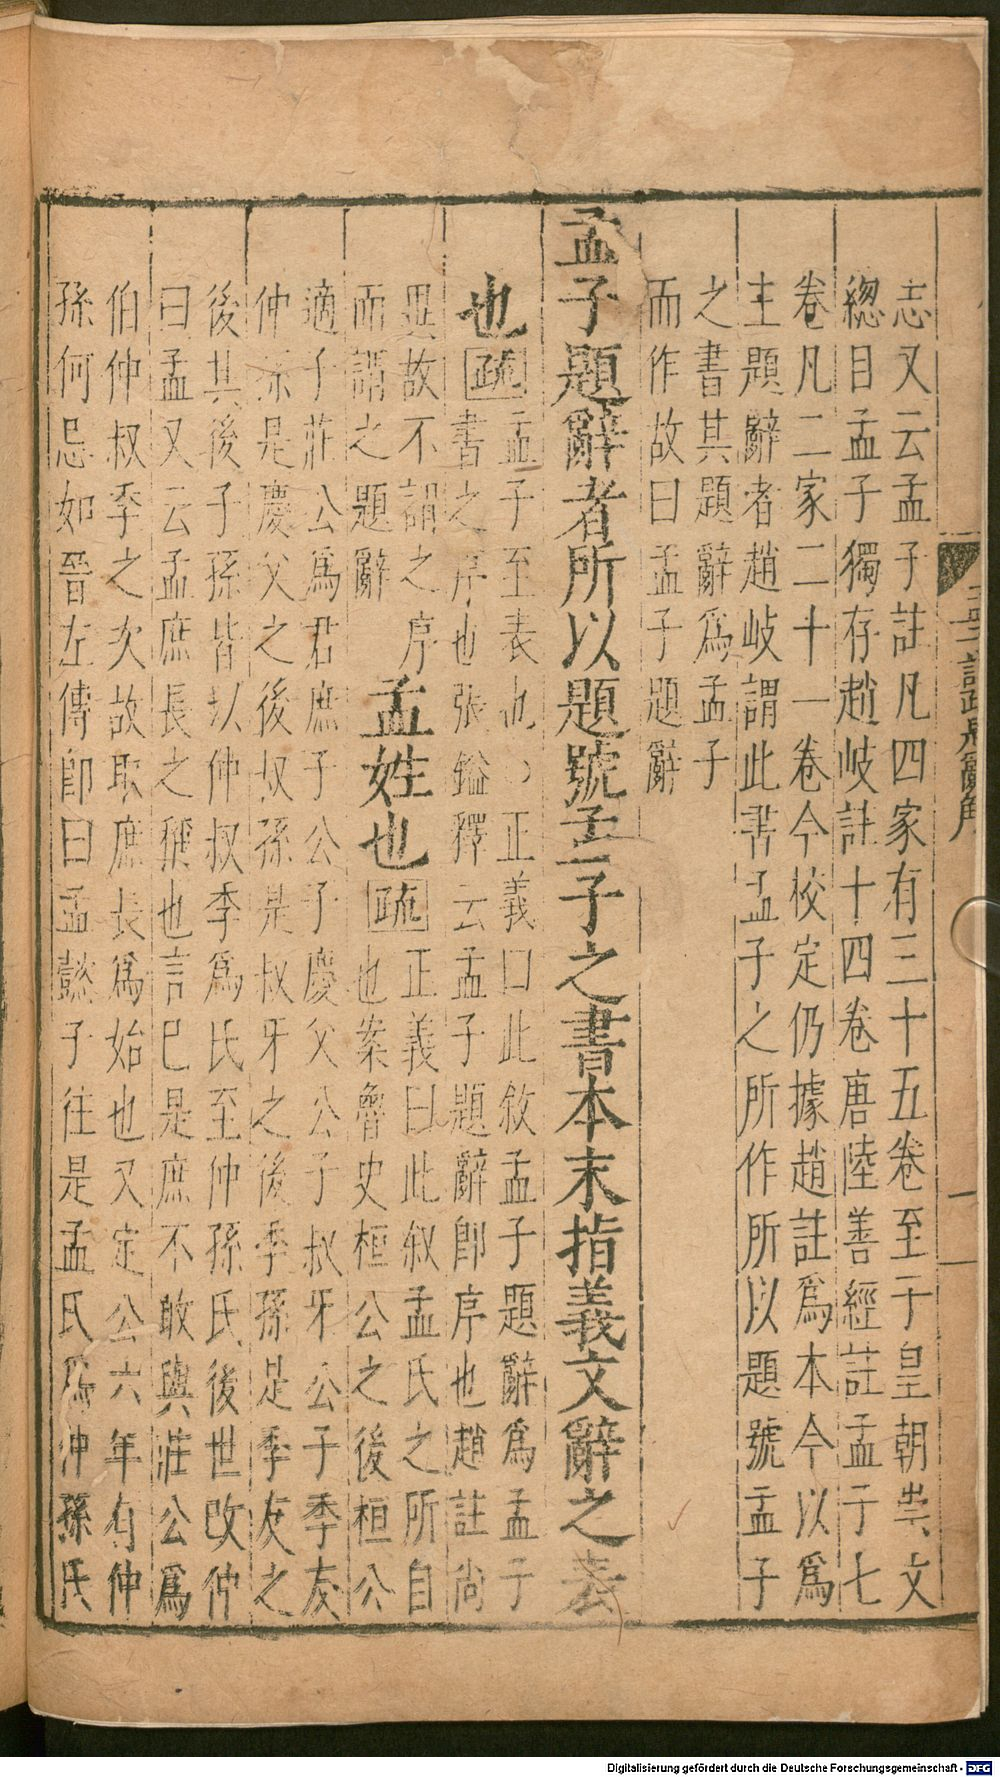 志又云孟子註凡四家有三十五卷至于皇朝崇文
總目孟子獨存趙岐註十四卷唐陸善經註孟子七
卷凡二家二十一卷今校定仍據趙註爲本今以爲
主題辭者趙岐謂此書孟子之所作所以題號孟子
之書其題辭爲孟子
而作故曰孟子題辭
孟子題辭者所以題號孟子之書本末指義文辭之表
也
疏
孟子至表也正義曰此敘孟子題辭爲孟子
書之序也張鎰釋云孟子題辭即序也趙註尚
異故不謂之序
而謂之題辭
孟姓也
疏
正義曰此叙孟氏之所自
也案魯史桓公之後桓公
適子莊公爲君庶子公子慶父公子叔牙公子季友
仲孫是慶父之後叔孫是叔牙之後季孫是季友之
後其後子孫皆以仲叔季爲氏至仲孫氏後世改仲
曰孟又云孟庶長之稱也言己是庶不敢與莊公爲
伯仲叔季之次故取庶長爲始也又定公六年有仲
孫何忌如晉左傳即曰孟懿子往是孟氏爲仲孫氏
一
Digitalisierung gefördert durch die Deutsche Forschungsgemeinschaft - DFG